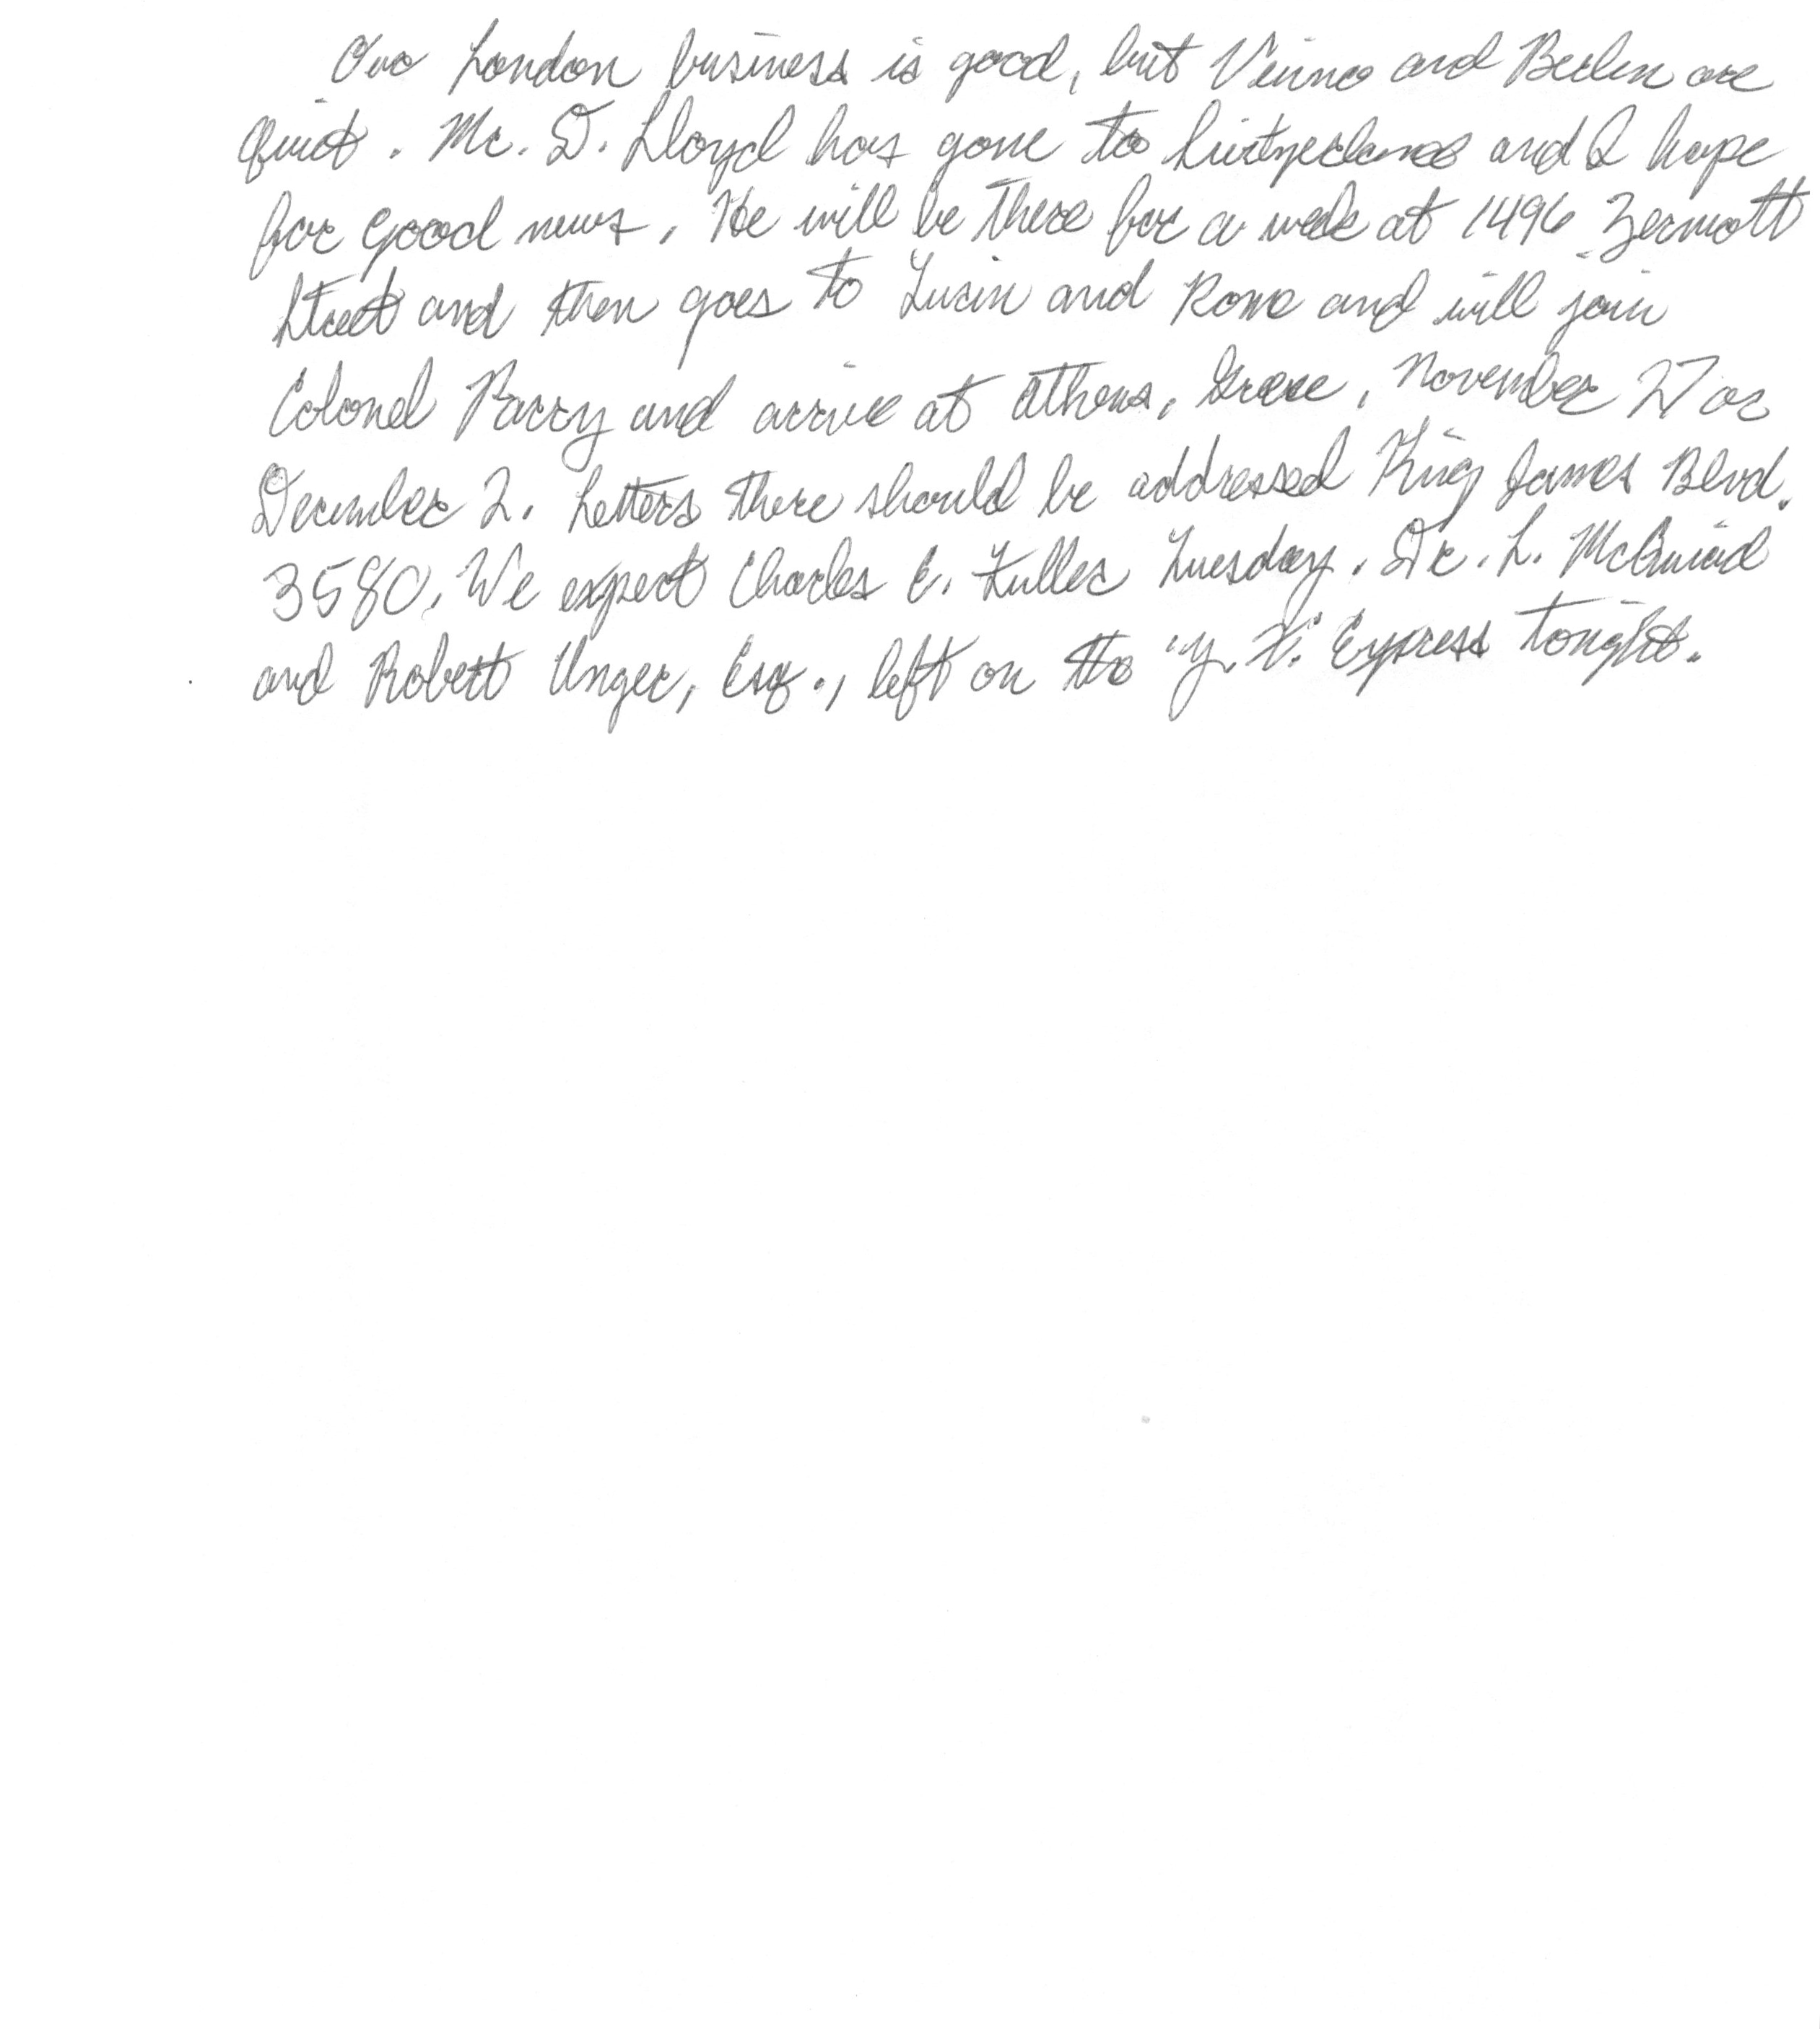 Our London business is good, but Vienna and Berlin are
quiet. Mr. D. Lloyd has gone to Switzerland and I hope
for good news. He will be there for a week at 1496 Zermott
Street and then goes to Turin and Rome and will join
Colonel Parry and arrive at Athens, Greece, November 27 or
December 2. Letters there should be addressed King James Blvd.
3580. We expect Charles E. Fuller Tuesday. Dr. L. McQuaid
and Robert Unger, Esq., left on the "Y. X. Express tonight.